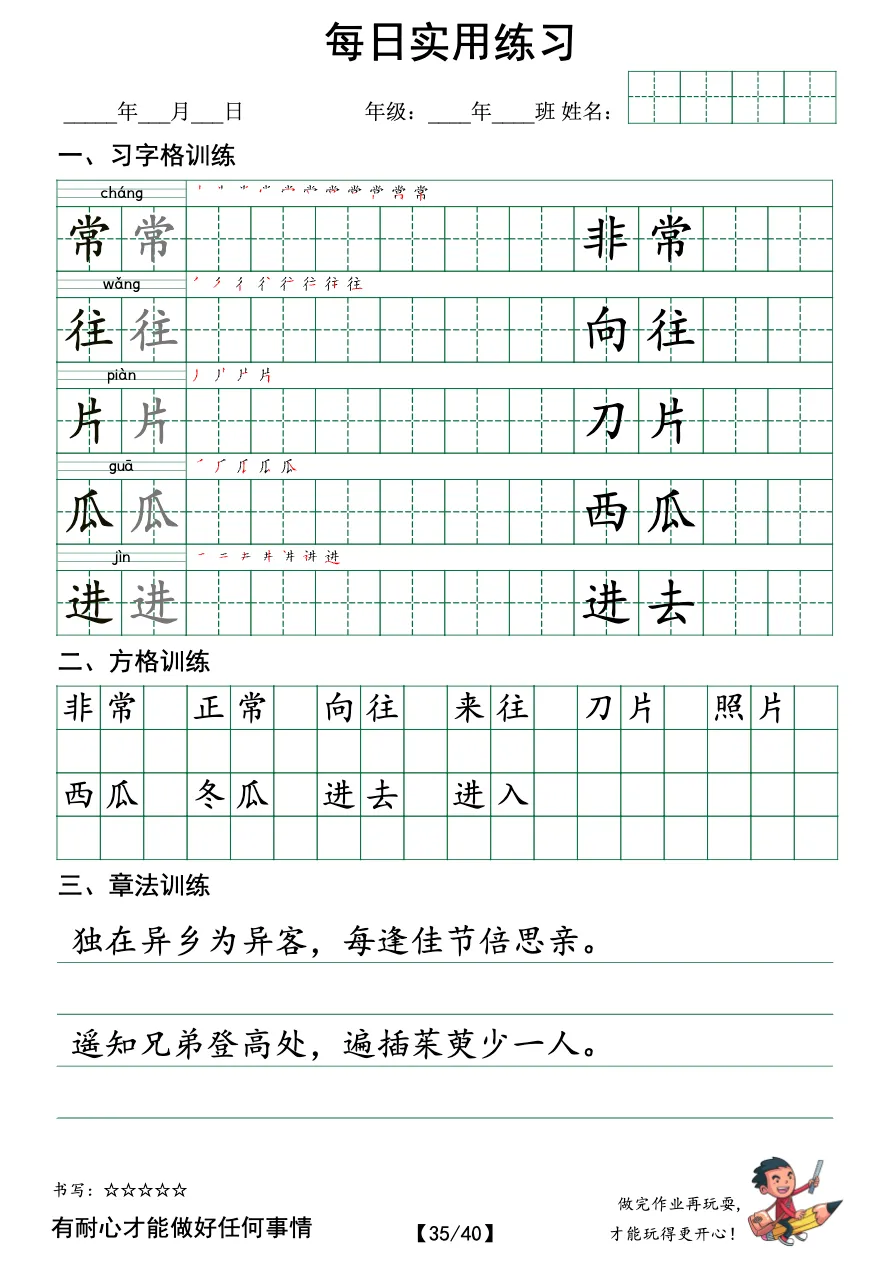 每日实用练习
_____年___月___日 年级：____年____班 姓名：
一、习字格训练
cháng
常 常 非 常
wǎng
往 往 向 往
piàn
片 片 刀 片
guā
瓜 瓜 西 瓜
jìn
进 进 进 去
二、方格训练
非 常 正 常 向 往 来 往 刀 片 照 片
西 瓜 冬 瓜 进 去 进 入
三、章法训练
独在异乡为异客，每逢佳节倍思亲。
遥知兄弟登高处，遍插茱萸少一人。
书写：☆☆☆☆☆
有耐心才能做好任何事情
【35/40】
做完作业再玩耍，
才能玩得更开心！